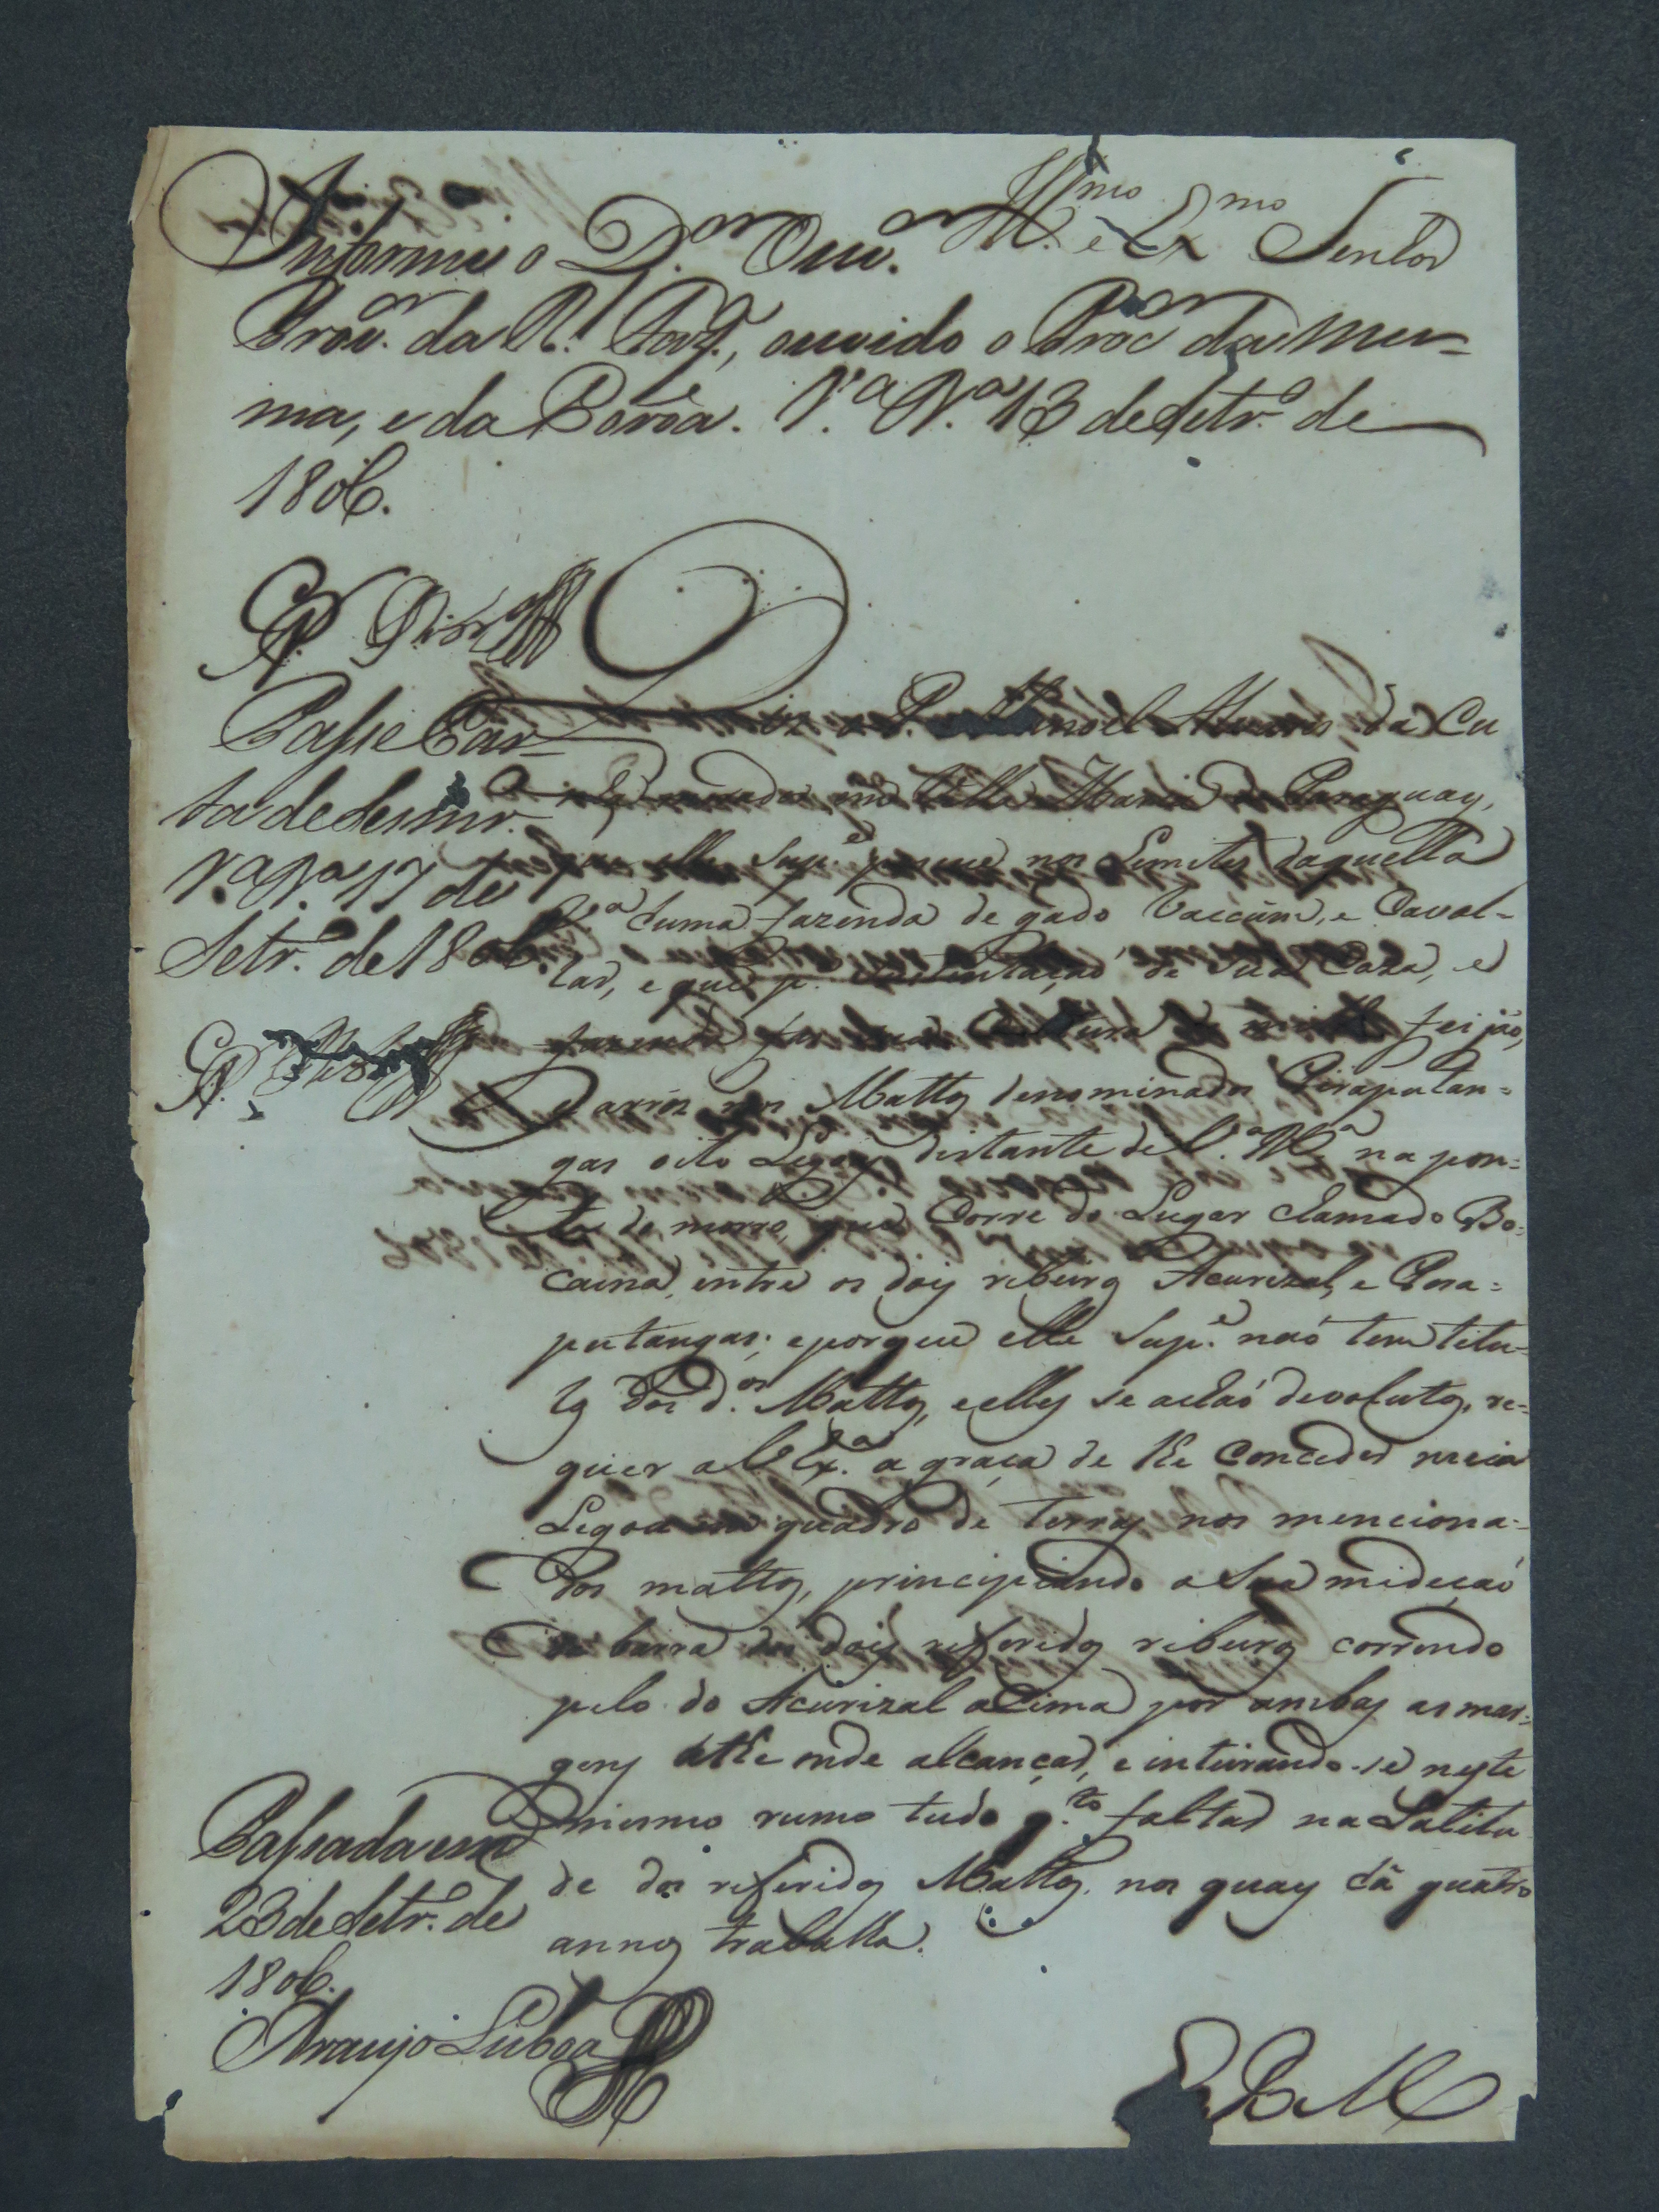 Illmo e Exmo Senhor
Informe o D.or Ouv.or
Prov.or da R.l Faz.da, ouvido o Proc.or da mes=
ma, e da Coroa. V.a M.a 13 de Setr.o de
1806.
Passe Car=
ta de Sesmr.
V.a M.a 17 de
Setr.o de 1806.
Diz o P. Manoel Alvares da Cu
nha morador em Villa Maria do Paraguay,
que elle Sup.e possue nos Limites daquella
V.a huma fazenda de gado Vaccum, e Caval=
lar, e que p.a sustentação de sua Caza, e
fazenda faz sua Cultura de milho feijão,
e arros nos Mattos denominados Piraputan=
gas oito Legoas distante de V.a M.a na pon=
ta de morro, que Corre do Lugar chamado Bo=
caina, entre os dois ribeiros Acurizal, e Pira=
putangas; e porque elle Sup.e não tem titu=
los dos d.os Mattos, e elles se achão devolutos, re=
quer a V. Ex.a a graça de lhe Conceder meia
Legoa em quadro de terras nos menciona=
dos mattos, principiando a Sua medição
na barra dos dois referidos ribeiros correndo
pelo do Acurizal aCima por ambas as mar=
gens athe onde alcançar, e inteirando-se neste
mesmo rumo tudo q.to faltar na Latitu
de dos referidos Mattos, nos quaes há quatro
annos trabalha.
Passada em
23 de Setr.o de
1806.
Araujo Lisboa
E R M